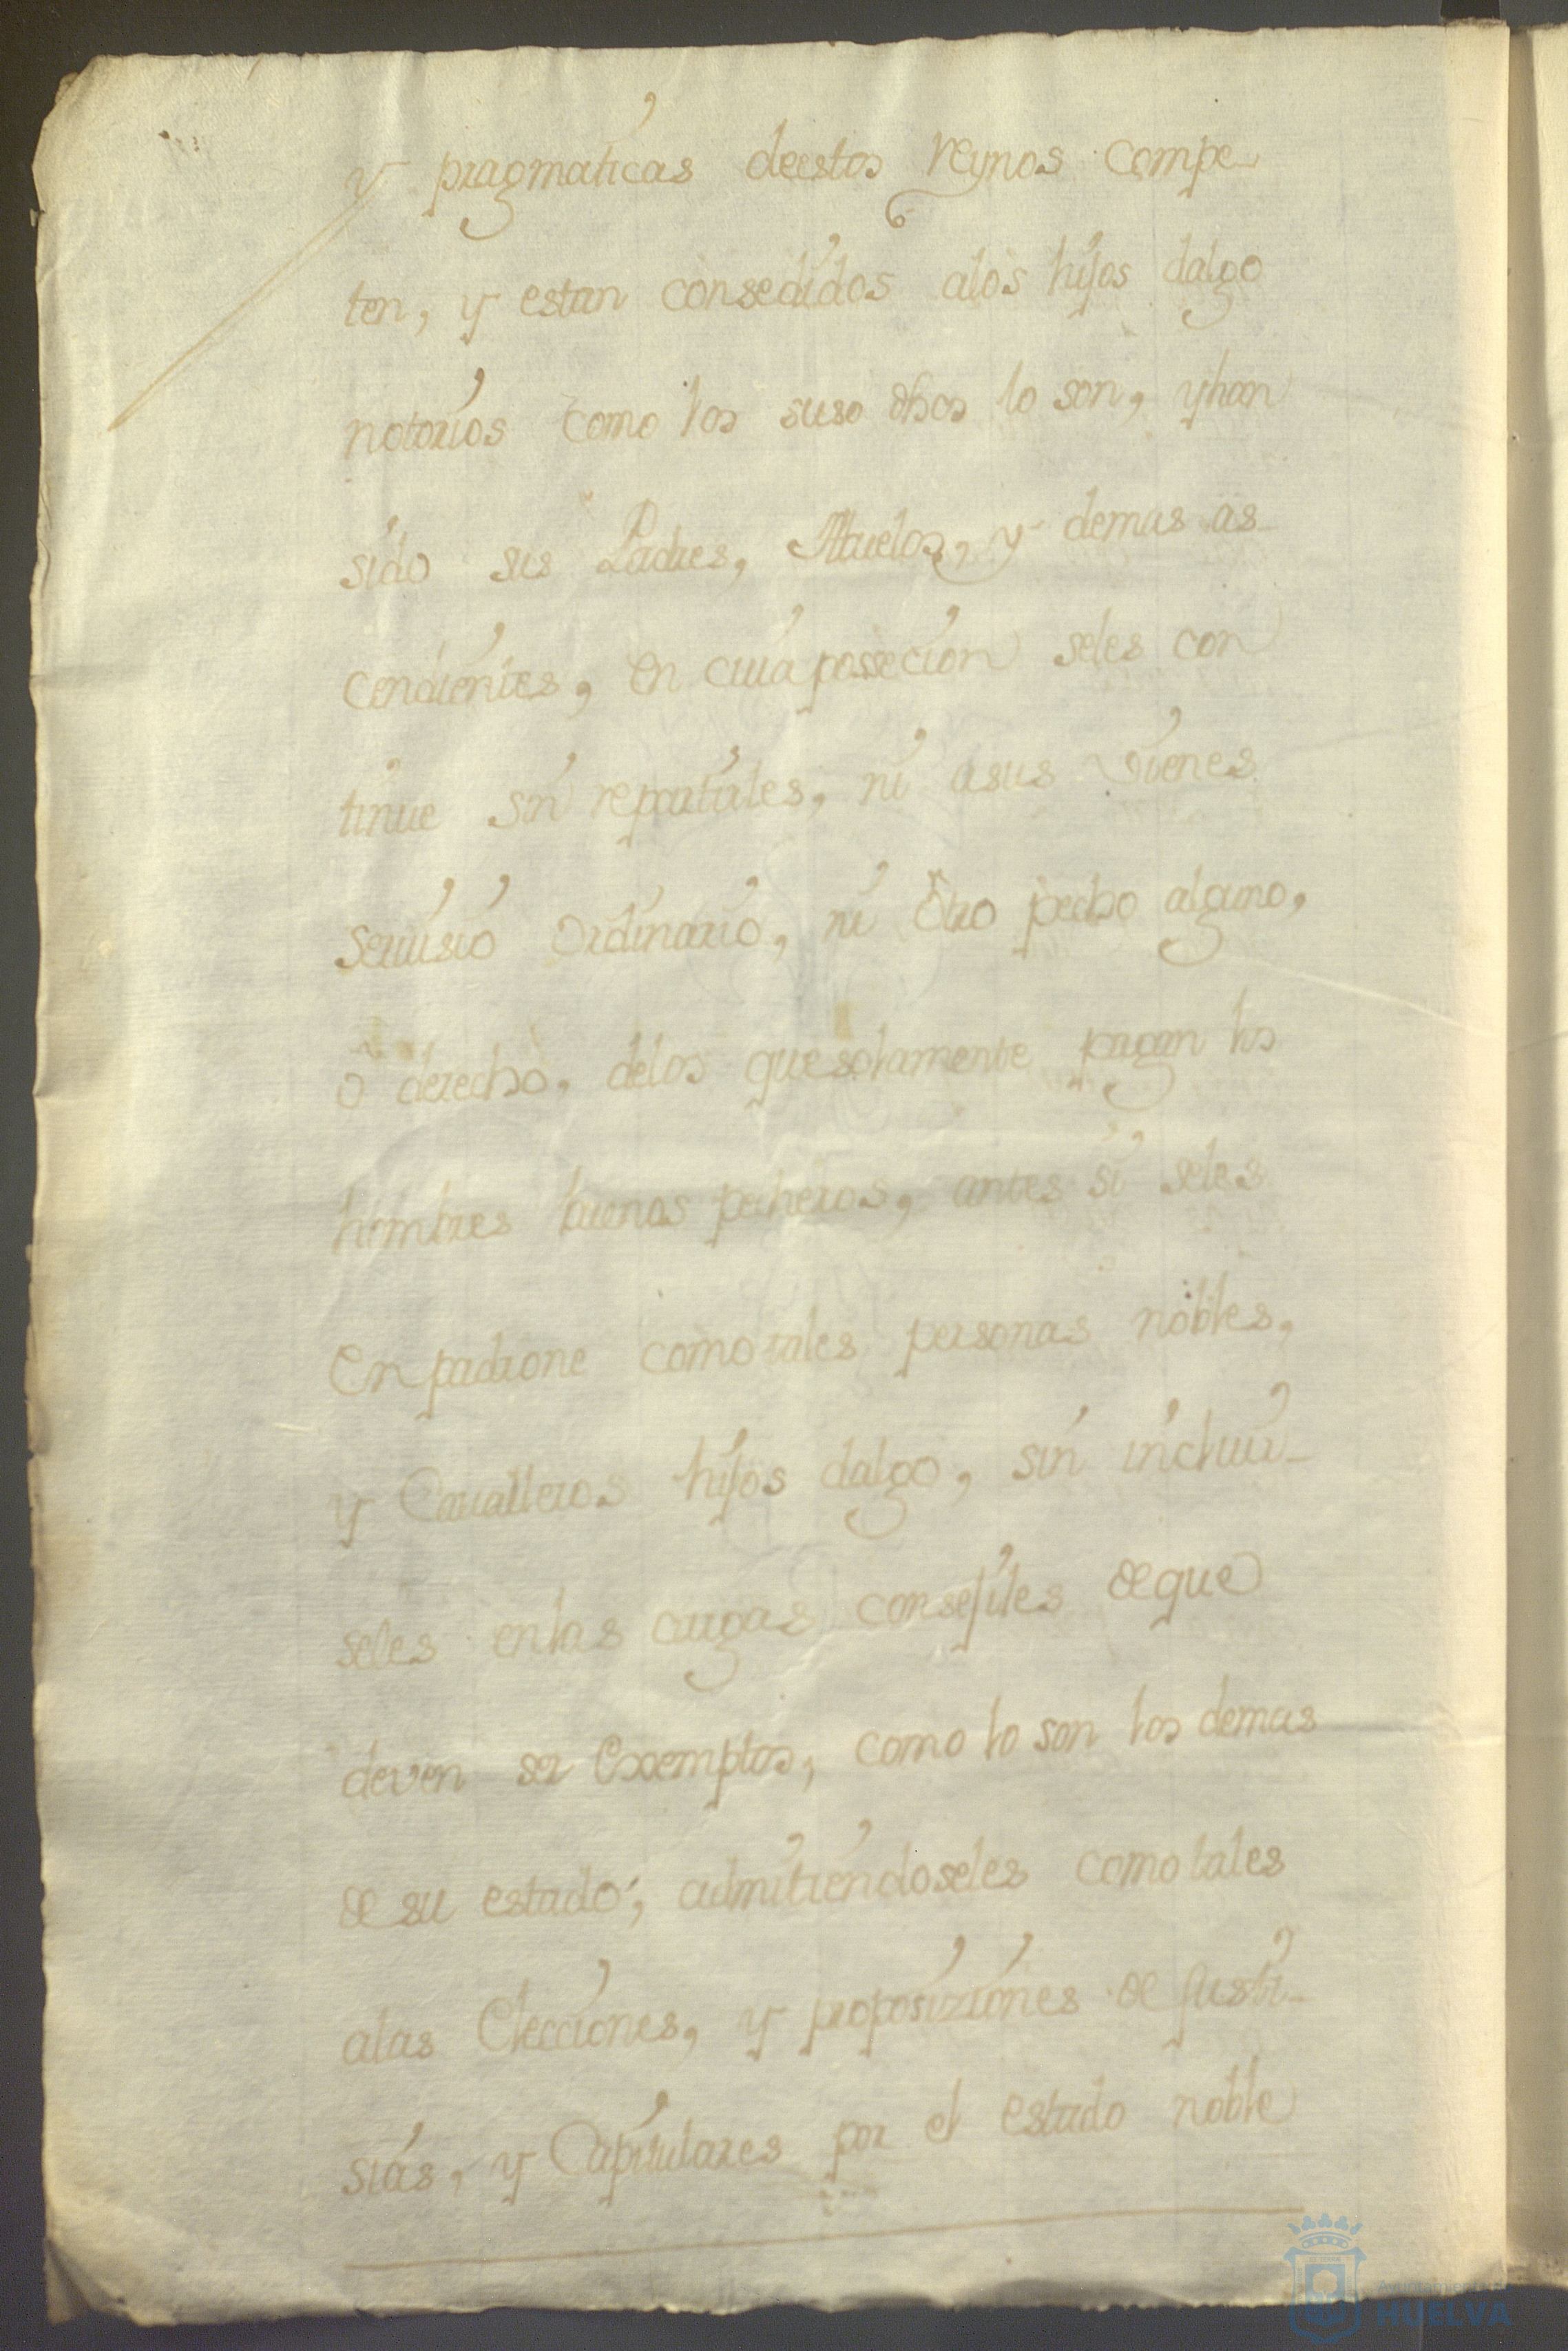 y pragmaticas deestos reynos compe-
ten, y estan consedidos alos hijos dalgo
notorios como los suso dhos lo son, yhan
sido sus Padres, Abuelos, y demas as-
cendientes, en cuia possecion seles con
tinue sin repartirles, ni asus vienes
servisio ordinario, ni otro pecho alguno,
ô derecho, delos quesolamente pagan los
hombres buenos pecheros, antes si seles
Enpadrone comotales personas nobles,
y Cavalleros hijos dalgo, sin incluir-
seles enlas cargas consejiles deque
deven ser Exsemptos, como lo son los demas
de su estado; admitiendoseles comotales
alas Elecciones, y proposiziones de Justi-
sias, y Capitulares por el estado noble
HUELVA